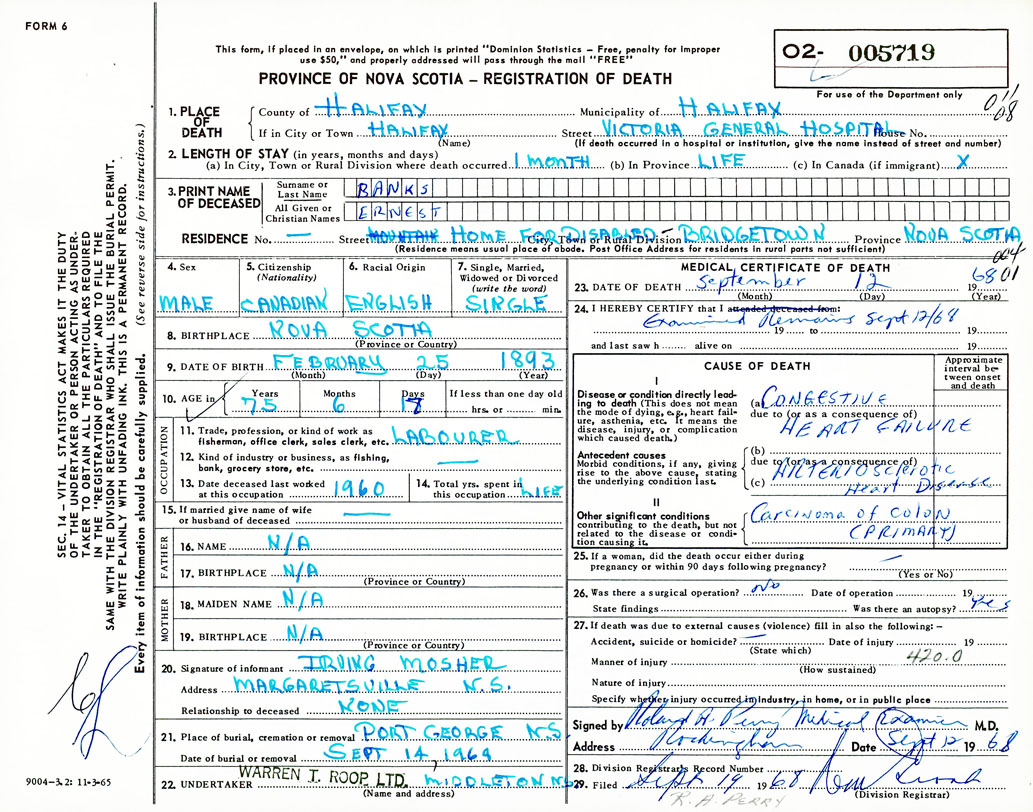 FORM 6
This form, if placed in an envelope, on which is printed "Dominion Statistics – Free, penalty for improper
use $50," and properly addressed will pass through the mail "FREE"
PROVINCE OF NOVA SCOTIA – REGISTRATION OF DEATH
O2- 005719
For use of the Department only
011
08
1. PLACE OF DEATH
County of HALIFAX Municipality of HALIFAX
If in City or Town HALIFAX Street VICTORIA GENERAL HOSPITAL House No.
(Name) (If death occurred in a hospital or institution, give the name instead of street and number)
2. LENGTH OF STAY (in years, months and days)
(a) In City, Town or Rural Division where death occurred 1 MONTH (b) In Province LIFE (c) In Canada (if immigrant) X
3. PRINT NAME OF DECEASED
Surname or Last Name BANKS
All Given or Christian Names ERNEST
RESIDENCE No. — Street MOUNTAIN HOME FOR DISABLED – City, Town or Rural Division BRIDGETOWN Province NOVA SCOTIA
(Residence means usual place of abode. Post Office Address for residents in rural parts not sufficient)
004
01
4. Sex 5. Citizenship (Nationality) 6. Racial Origin 7. Single, Married, Widowed or Divorced (write the word)
MALE CANADIAN ENGLISH SINGLE
8. BIRTHPLACE NOVA SCOTIA
(Province or Country)
9. DATE OF BIRTH FEBRUARY 25 1893
(Month) (Day) (Year)
10. AGE in Years Months Days If less than one day old
75 6 18 hrs. or min.
OCCUPATION
11. Trade, profession, or kind of work as
fisherman, office clerk, sales clerk, etc. LABOURER
12. Kind of industry or business, as fishing,
bank, grocery store, etc. —
13. Date deceased last worked
at this occupation 1960
14. Total yrs. spent in
this occupation LIFE
15. If married give name of wife
or husband of deceased —
FATHER
16. NAME N/A
17. BIRTHPLACE N/A
(Province or Country)
MOTHER
18. MAIDEN NAME N/A
19. BIRTHPLACE N/A
(Province or Country)
20. Signature of informant IRVING MOSHER
Address MARGARETSVILLE N.S.
Relationship to deceased NONE
21. Place of burial, cremation or removal PORT GEORGE N.S.
Date of burial or removal SEPT 14, 1969
22. UNDERTAKER WARREN T. ROOP LTD. MIDDLETON N.S.
(Name and address)
MEDICAL CERTIFICATE OF DEATH
23. DATE OF DEATH September 12 19 68
(Month) (Day) (Year)
24. I HEREBY CERTIFY that I attended deceased from:
Examined Remains Sept 12/68
19 to 19
and last saw h alive on 19
CAUSE OF DEATH
Approximate interval between onset and death
I
Disease or condition directly leading
to death (This does not mean
the mode of dying, e.g., heart failure,
asthenia, etc. It means the
disease, injury, or complication
which caused death.)
(a) CONGESTIVE
due to (or as a consequence of)
HEART FAILURE
Antecedent causes
Morbid conditions, if any, giving
rise to the above cause, stating
the underlying condition last.
(b)
due to (or as a consequence of)
ARTERIOSCLEROTIC
(c) Heart Disease
II
Other significant conditions
contributing to the death, but not
related to the disease or condition
causing it.
Carcinoma of Colon
(PRIMARY)
25. If a woman, did the death occur either during
pregnancy or within 90 days following pregnancy? —
(Yes or No)
26. Was there a surgical operation? No Date of operation 19
State findings Was there an autopsy? Yes
27. If death was due to external causes (violence) fill in also the following: –
Accident, suicide or homicide? — Date of injury 19
(State which)
Manner of injury 420.0
(How sustained)
Nature of injury
Specify whether injury occurred in industry, in home, or in public place
Signed by Roland A. Perry Medical Examiner M.D.
Address Rockingham Date Sept 12 19 68
28. Division Registrar's Record Number
29. Filed Sept 19 19 68
(Division Registrar)
R. A. PERRY
SEC. 14 – VITAL STATISTICS ACT MAKES IT THE DUTY
OF THE UNDERTAKER OR PERSON ACTING AS UNDERTAKER
TO OBTAIN ALL THE PARTICULARS REQUIRED
IN THE "REGISTRATION OF DEATH" AND TO FILE THE
SAME WITH THE DIVISION REGISTRAR WHO SHALL ISSUE THE BURIAL PERMIT.
WRITE PLAINLY WITH UNFADING INK. THIS IS A PERMANENT RECORD.
Every item of information should be carefully supplied. (See reverse side for instructions.)
9004-3.2: 11-3-65